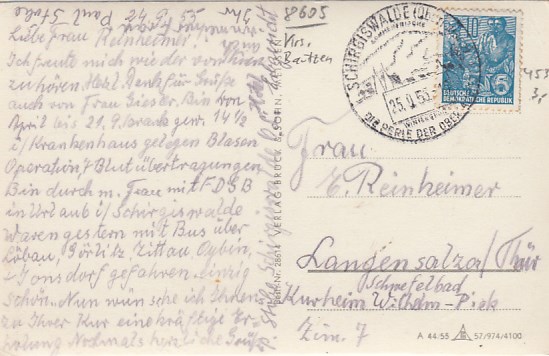 24.9.55
Liebe Frau Reinheimer!
Ich freute mich wie der von Ihnen
zu hören. Herzl. Dank für Grüße
auch von Frau Giesler. Bin von
April bis 21.9. krank gew. 14½
i/Krankenhaus gelegen Blasen
Operation, 7 Blut übertragungen
Bin durch m. Frau mit FDGB
in Urlaub i/Schirgiswalde
Waren gestern mit Bus über
Löbau, Görlitz, Zittau, Oybin,
Jonsdorf gefahren. Einzig
Schön. Nun wünsche ich Ihnen
zu Ihrer Kur eine kräftige Er-
holung Nochmals herzliche Grüße
Ihr
Paul
8605
Krs.
Bautzen
SCHIRGISWALDE
25.9.55
DIE PERLE DER
10
5
DEUTSCHE
DEMOKRATISCHE REPUBLIK
453
VERLAG BRÜCK & SOHN, MEISSEN
Frau
E. Reinheimer
Langensalza/Thür
Schwefelbad
Kurheim Wilhelm-Pieck
Zim. 7
A 44/55 57/974/4100